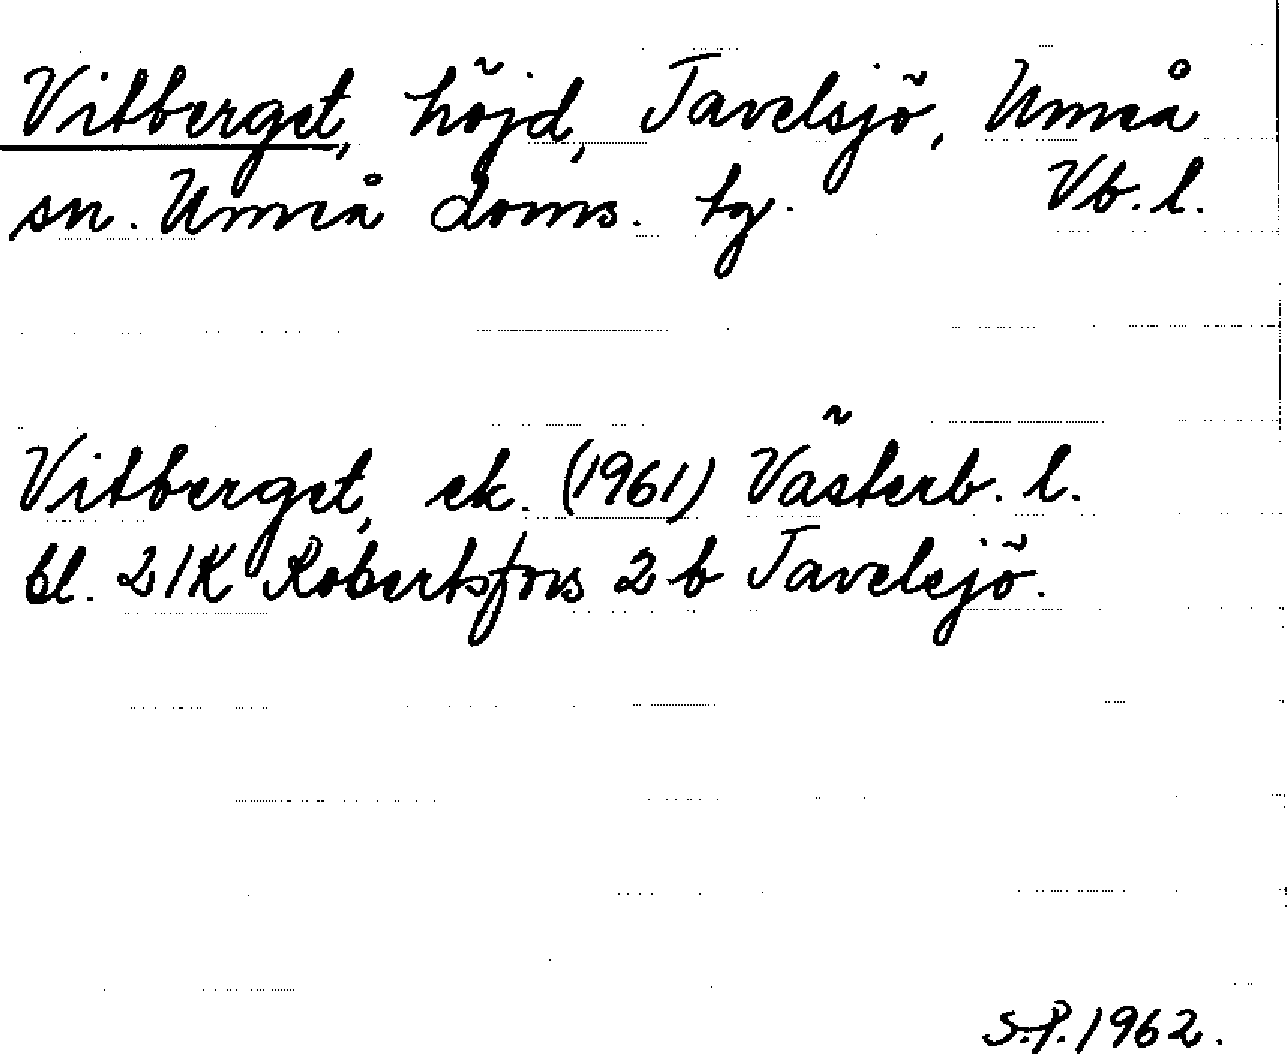 Vitberget, höjd, Tavelsjö, Umeå
sn. Umeå doms. tg. Vb. l.
Vitberget, ek. (1961) Västerb. l.
bl. 21K Robertsfors 2 b Tavelsjö.
S.P. 1962.